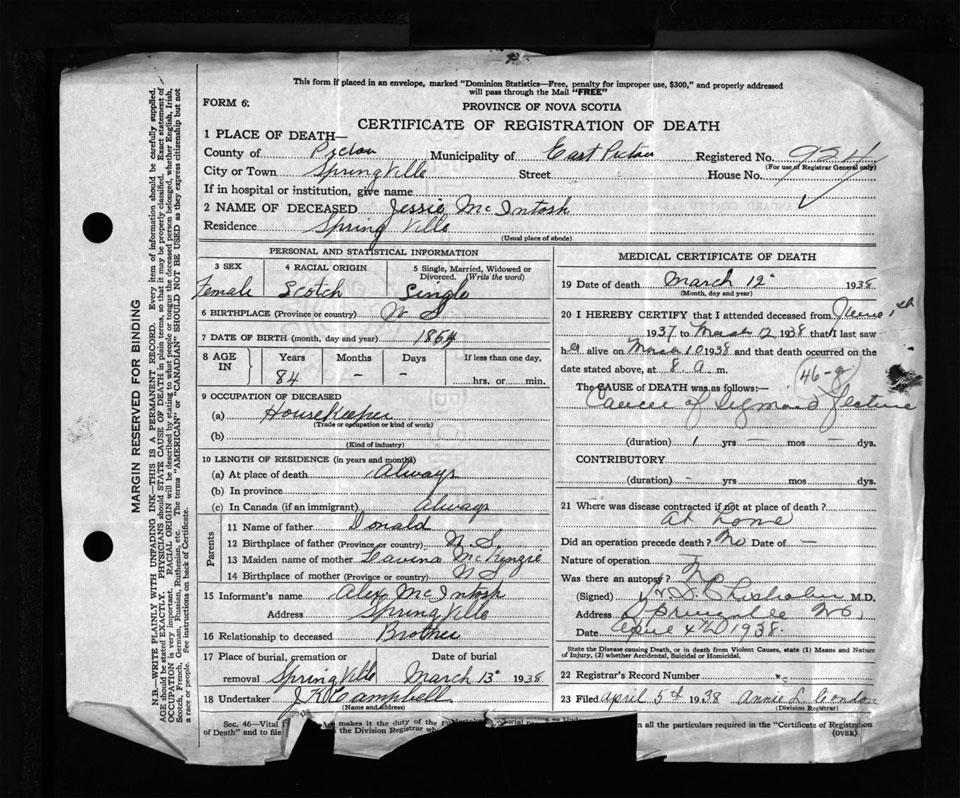 This form if placed in an envelope, marked "Dominion Statistics—Free, penalty for improper use, $300," and properly addressed
will pass through the Mail "FREE"
FORM 6.
PROVINCE OF NOVA SCOTIA
CERTIFICATE OF REGISTRATION OF DEATH
1 PLACE OF DEATH—
County of Pictou Municipality of East Pictou Registered No.
(For use of Registrar General only)
City or Town Springville Street House No.
If in hospital or institution, give name
2 NAME OF DECEASED Jessie McIntosh
Residence Spring Ville
(Usual place of abode)
PERSONAL AND STATISTICAL INFORMATION
3 SEX 4 RACIAL ORIGIN 5 Single, Married, Widowed or
Divorced. (Write the word)
Female Scotch Single
6 BIRTHPLACE (Province or country) N S
7 DATE OF BIRTH (month, day and year) 1854
8 AGE IN Years Months Days If less than one day,
84 – – hrs. or min.
9 OCCUPATION OF DECEASED
(a) Housekeeper
(Trade or occupation or kind of work)
(b)
(Kind of industry)
10 LENGTH OF RESIDENCE (in years and months)
(a) At place of death Always
(b) In province
(c) In Canada (if an immigrant) Always
Parents
11 Name of father Donald
12 Birthplace of father (Province or country) N S.
13 Maiden name of mother Davina McKenzie
14 Birthplace of mother (Province or country) N S
15 Informant's name Alex McIntosh
Address SpringVille
16 Relationship to deceased Brother
17 Place of burial, cremation or Date of burial
removal SpringVille March 13" 1938
18 Undertaker J. K. Campbell
(Name and address)
MEDICAL CERTIFICATE OF DEATH
19 Date of death March 12" 1938
(Month, day and year)
20 I HEREBY CERTIFY that I attended deceased from June 1st
1937 to March 12 1938 that I last saw
her alive on March 10 1938 and that death occurred on the
date stated above, at 8 a. m.
46-g
The CAUSE of DEATH was as follows:—
Cancer of Sigmoid flexure
(duration) 1 yrs — mos — dys.
CONTRIBUTORY
(duration) - yrs. mos. dys.
21 Where was disease contracted if not at place of death?
At home
Did an operation precede death? No Date of —
Nature of operation
Was there an autopsy? No
(Signed) M.D.
Address Springville NS
Date April 4th 1938.
State the Disease causing Death, or in death from Violent Causes, state (1) Means and Nature
of Injury, (2) whether Accidental, Suicidal or Homicidal.
22 Registrar's Record Number
23 Filed April 5th 1938 Annie L
(Division Registrar)
Sec. 46—Vital Act makes it the duty of the
of Death" and to file the Division Registrar
all the particulars required in the "Certificate of Registration
(OVER)
MARGIN RESERVED FOR BINDING
N.B.—WRITE PLAINLY WITH UNFADING INK—THIS IS A PERMANENT RECORD. Every item of information should be carefully supplied.
AGE should be stated EXACTLY. PHYSICIANS should STATE CAUSE OF DEATH in plain terms, so that it may be properly classified. Exact statement of
OCCUPATION is very important. RACIAL ORIGIN will be described by stating to what people or tongue the deceased person belonged, whether English, Irish,
Scotch, French, German, Russian, Ruthenian, etc. The terms "AMERICAN" or "CANADIAN" SHOULD NOT BE USED as they express citizenship but not
a race or people. See instructions on back of Certificate.